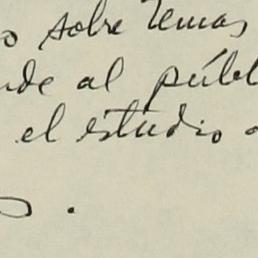 o sobre temas
nde al públ
el estudio